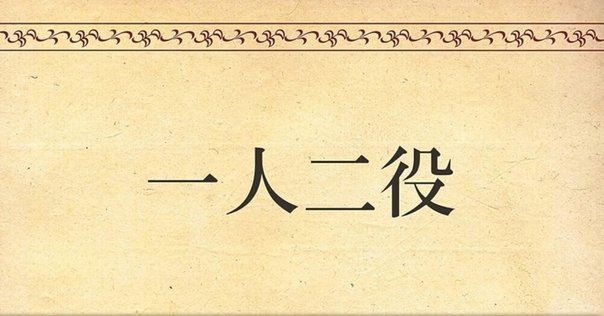 一人二役